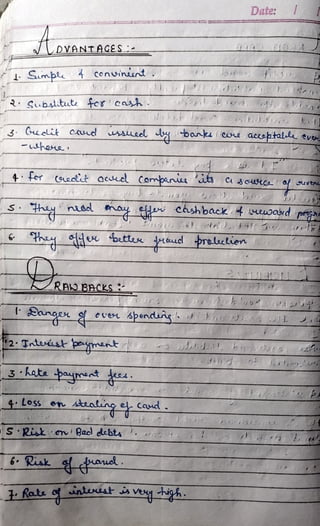 Date: / /
ADVANTAGES :-
1. Simple & convinient.
2. Substitute for cash.
3. Credit card issued by banks are acceptable every
-where.
4. For credit card companies its a source of
5. They may offer cashback & reward
6. They offer better fraud protection
DRAWBACKS :-
1. Danger of over spending.
2. Interest payment
3. Late payment fees.
4. Loss or stealing of card.
5. Risk on Bad debts
6. Risk of fraud.
7. Rate of interest is very high.